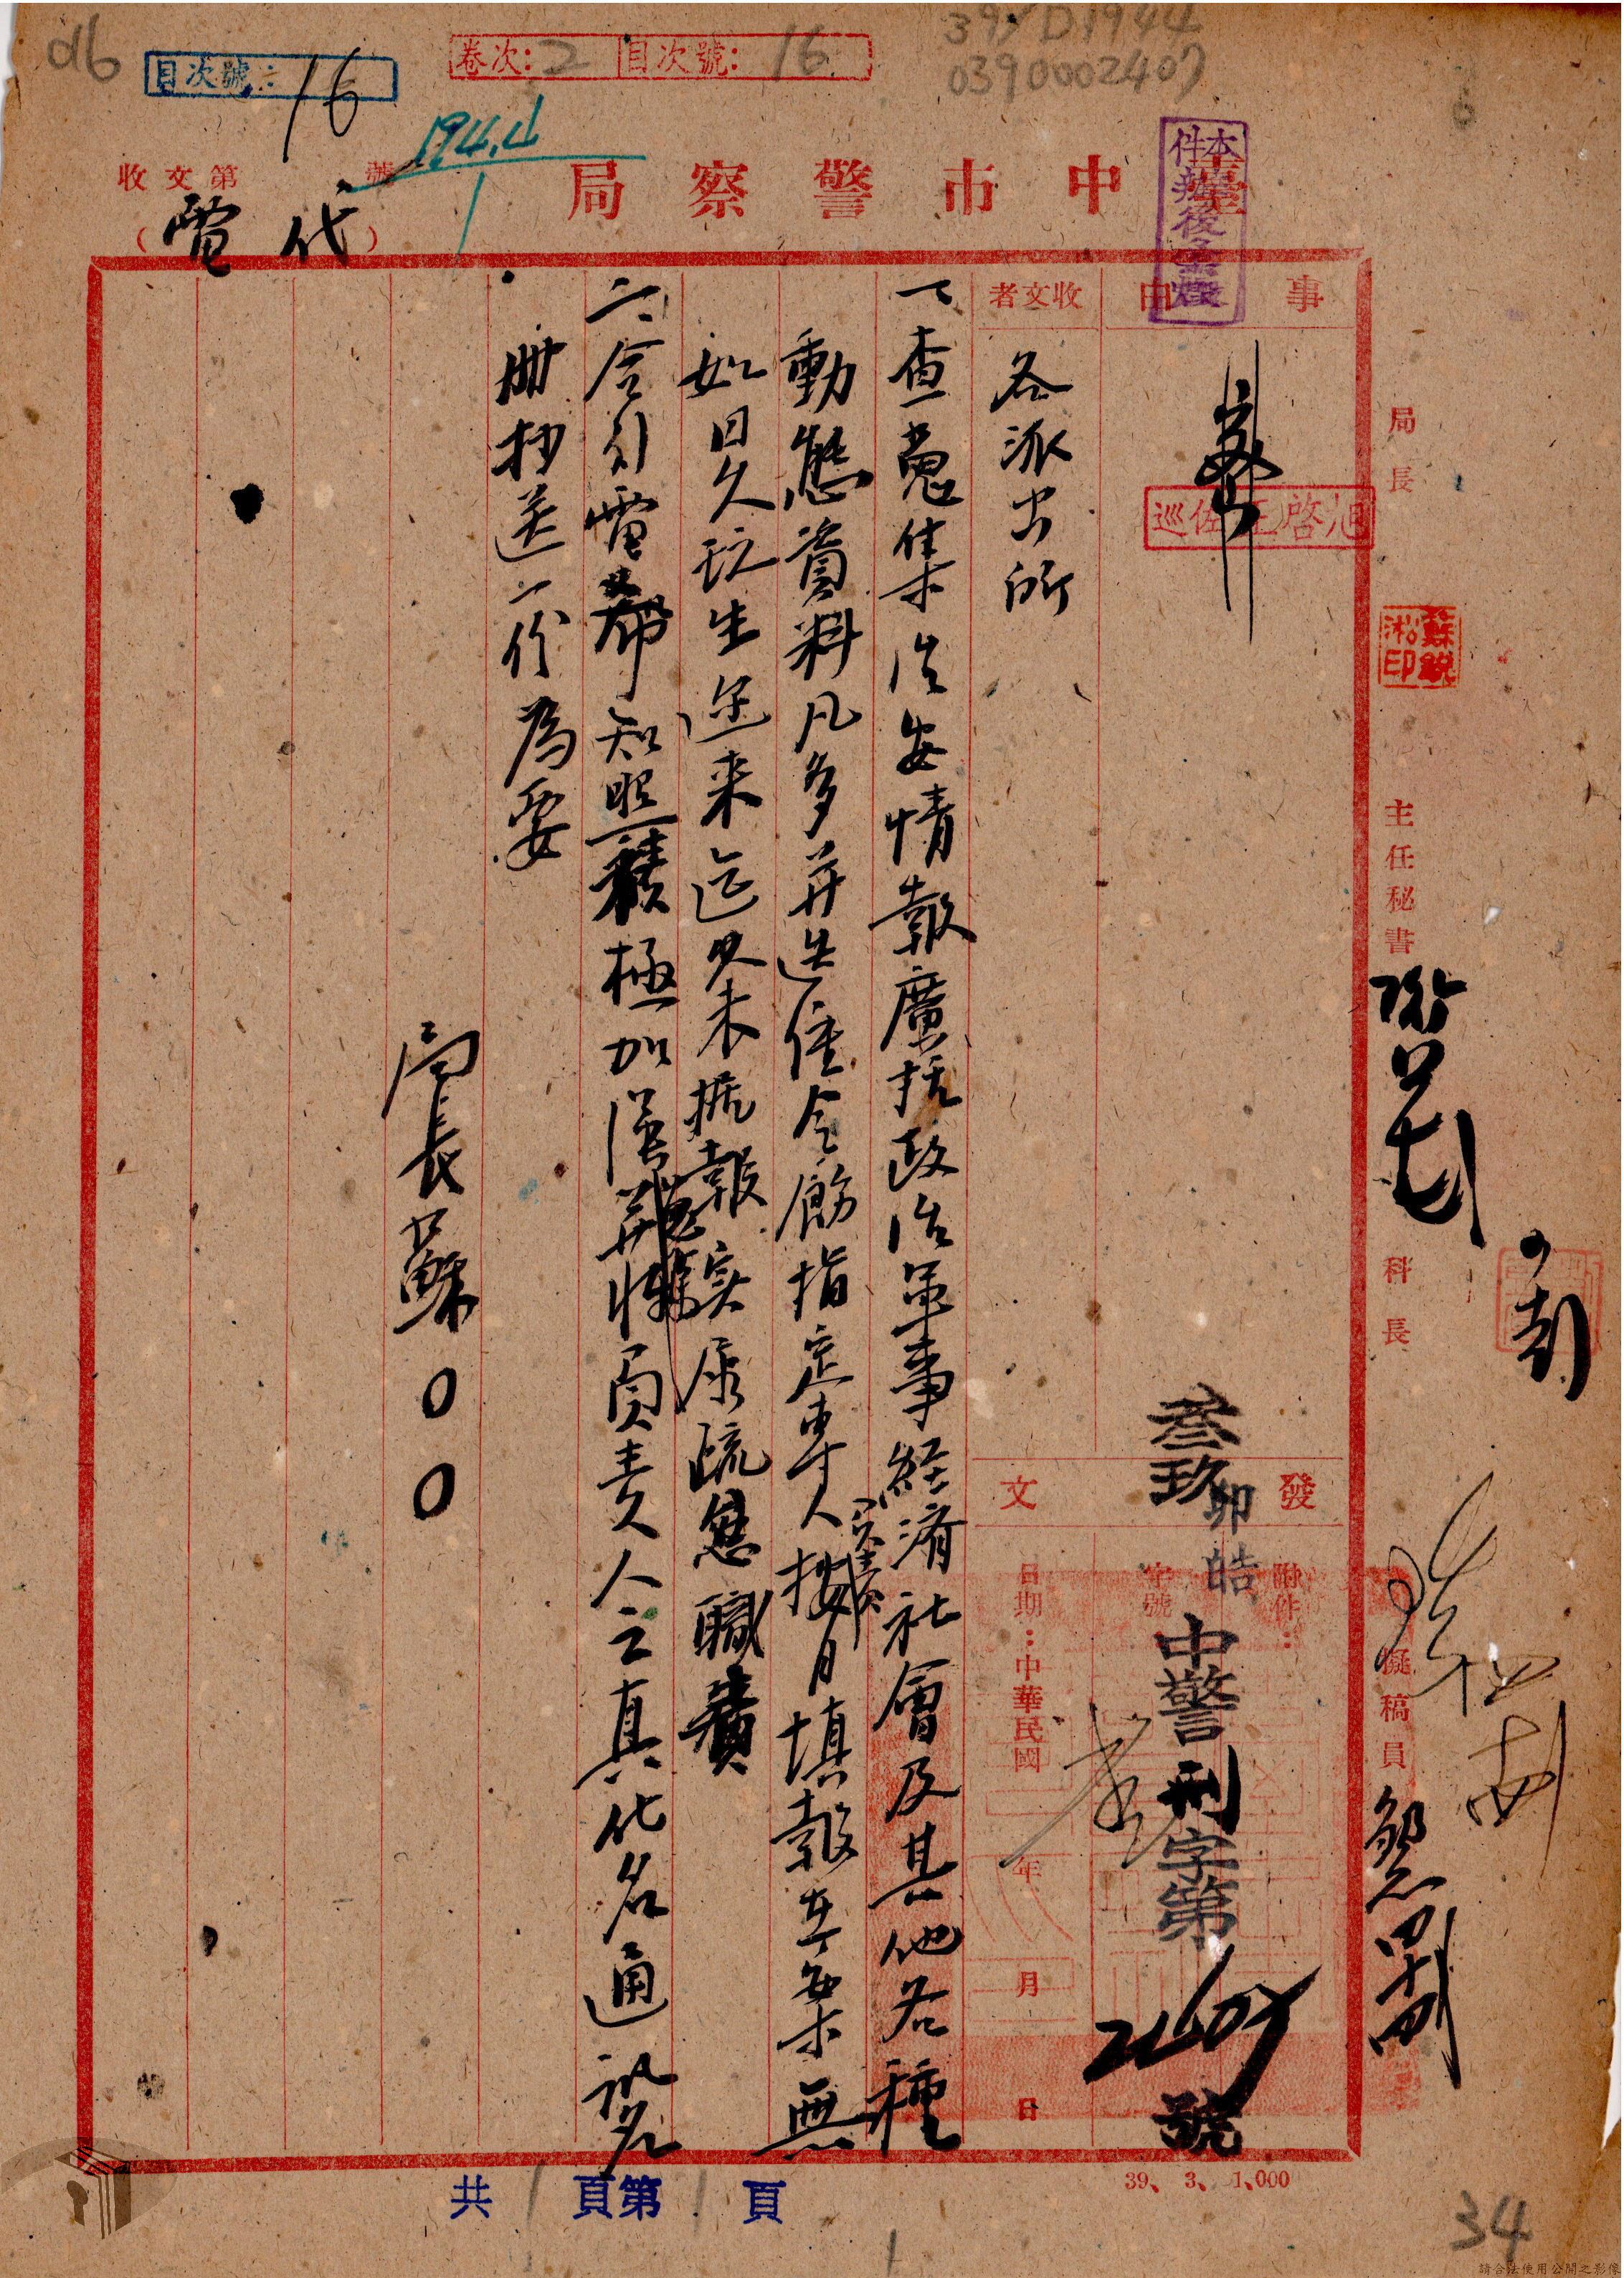 16
目次號：16
卷次：2 目次號：16
0390002407
194.4
1
收文第 號
(代電)
臺中市警察局
本件辦後
事由
收文者
各派出所
一、查蒐集治安情報廣括政治軍事経済社會及其他各種
動態資料凡多并迭經令飭指定專人負責按月填報在案無
如日久玩生近來迄久未據報実屬疏怠職責
二、合引電希知照積極加強并將負責人之真化名通訊处
冊抄送一份為要
局長蘇00
局長
巡佐王啓旭
蘇銳淞印
主任秘書
科長
擬稿員
發文
附件：
字號
日期：中華民國 年 月 日
叁玖卯皓
中警刑字第 號
共1頁第1頁
39、3、1,000
34
請合法使用公開之影像